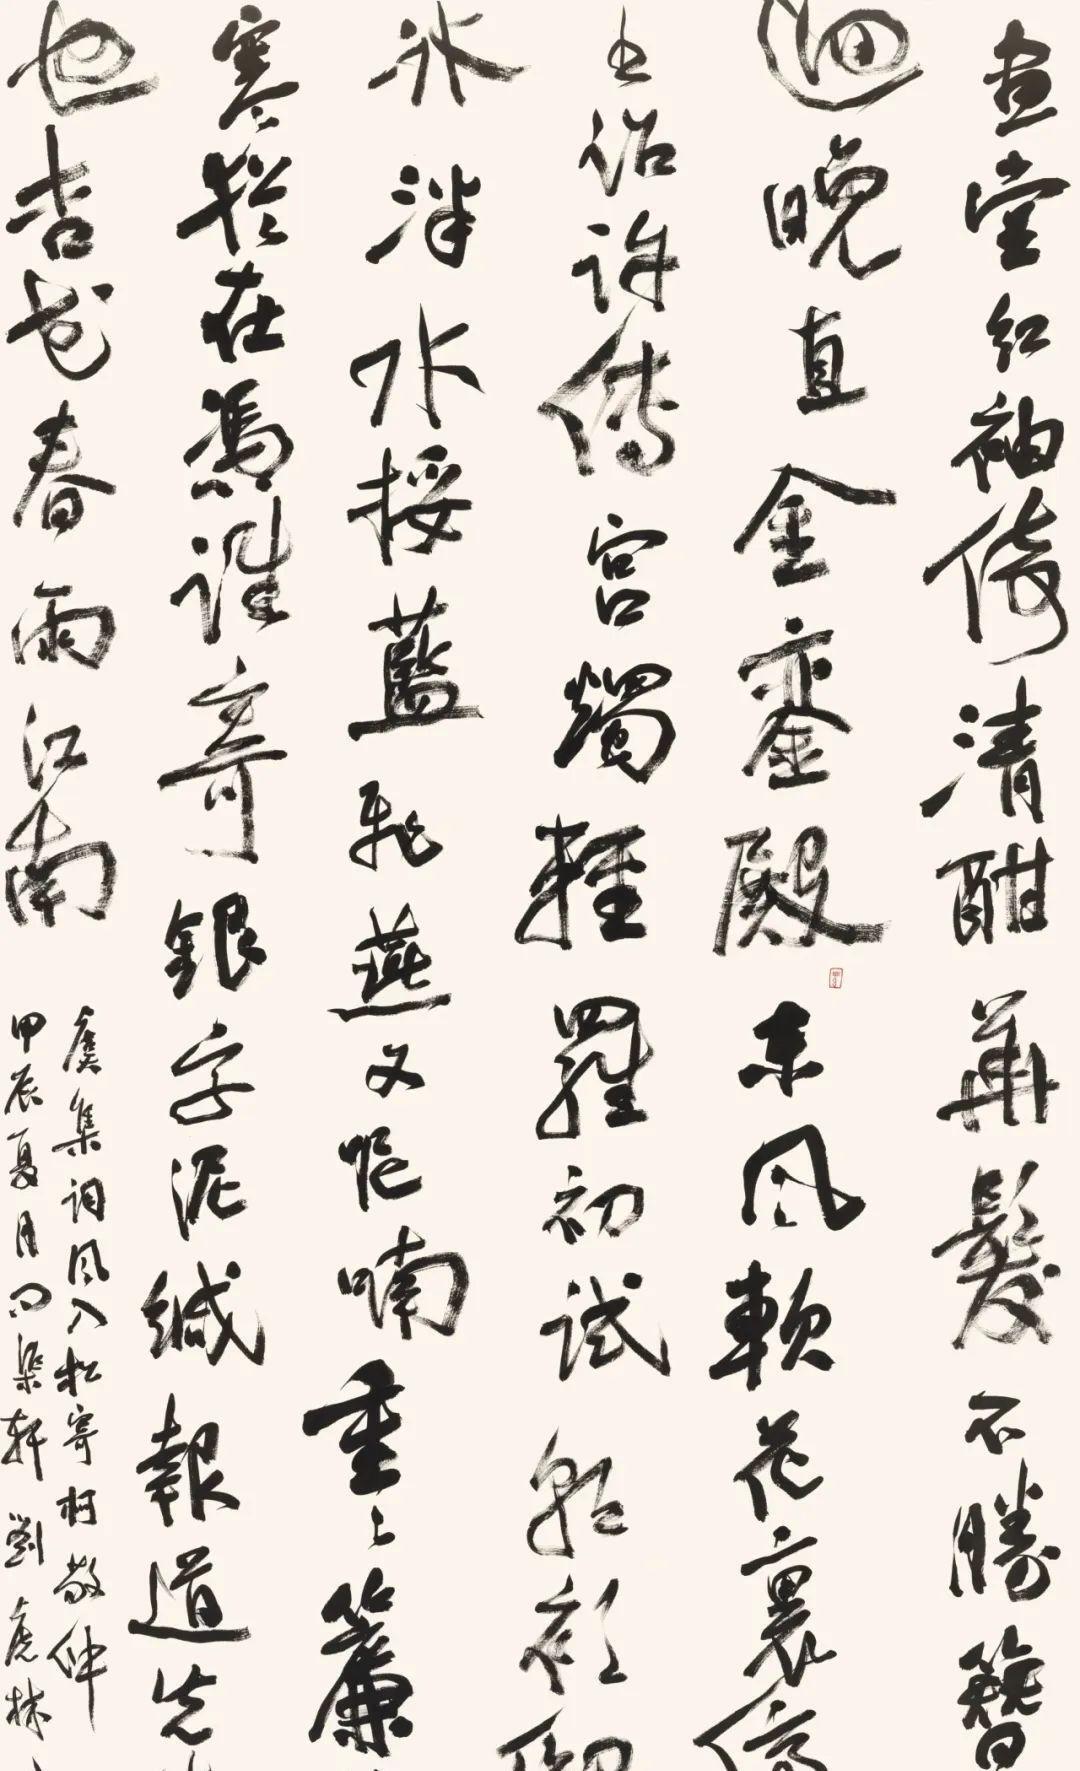 畫堂紅袖倚清酣華髮不勝簪
迴晚直金鑾殿東風軟花裏停
書詔許傳宮燭輕羅初試朝衫御
冰泮水挼藍飛燕又呢喃重〻簾
寒猶在憑誰寄銀字泥緘報道先
也杏花春雨江南
虞集詞風入松寄柯敬仲
甲辰夏月問渠軒劉